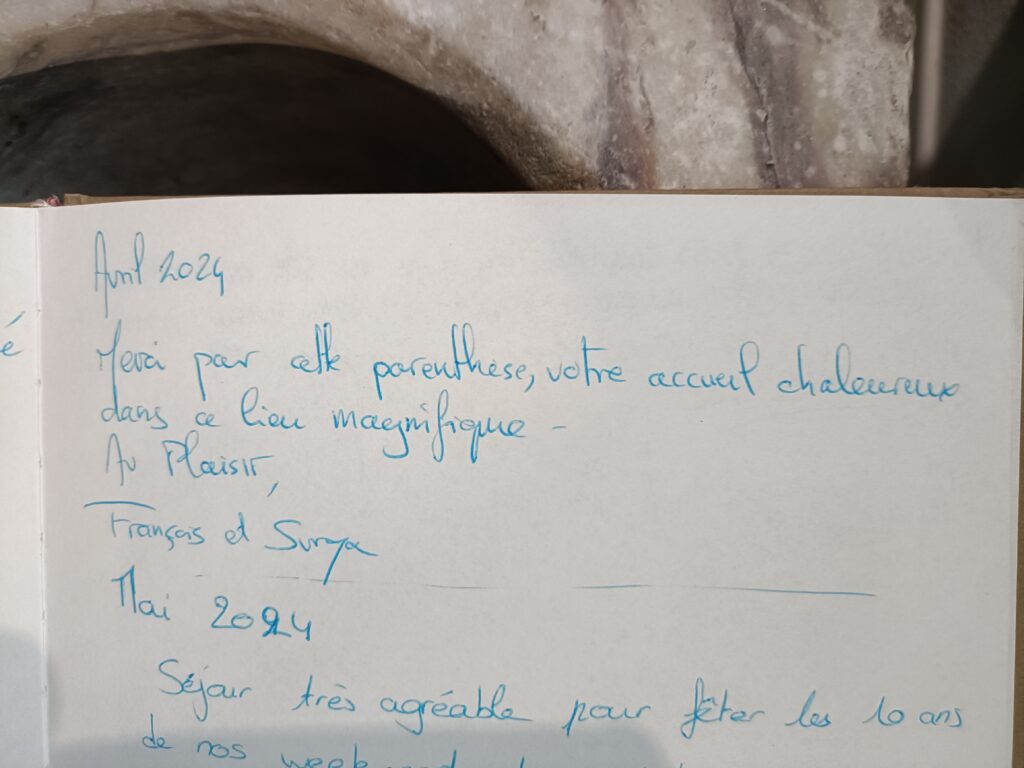 é
Avril 2024
Merci pour cette parenthese, votre accueil chaleureux
dans ce lieu magnifique -
Au Plaisir,
François et Surya
Mai 2024
Séjour très agréable pour fêter les 10 ans
de nos week